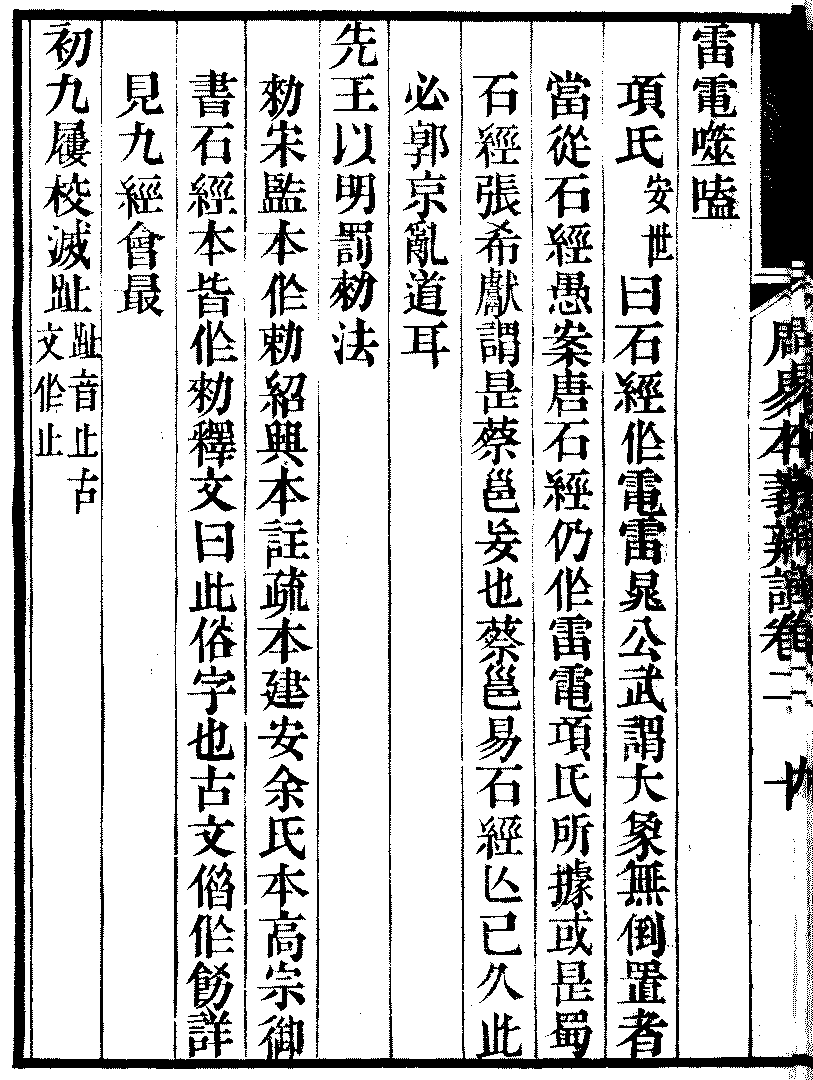 雷電噬嗑
項氏安世曰石經作電雷晁公武謂大象無倒置者
當從石經愚案唐石經仍作雷電項氏所據或是蜀
石經張希獻謂是蔡邕妄也蔡邕易石經亾已久此
必郭京亂道耳
先王以明罰勑法
勑宋監本作勅紹興本註疏本建安余氏本高宗御
書石經本皆作勑釋文曰此俗字也古文僞作飭詳
見九經會最
初九屨校滅趾趾音止古
文作止